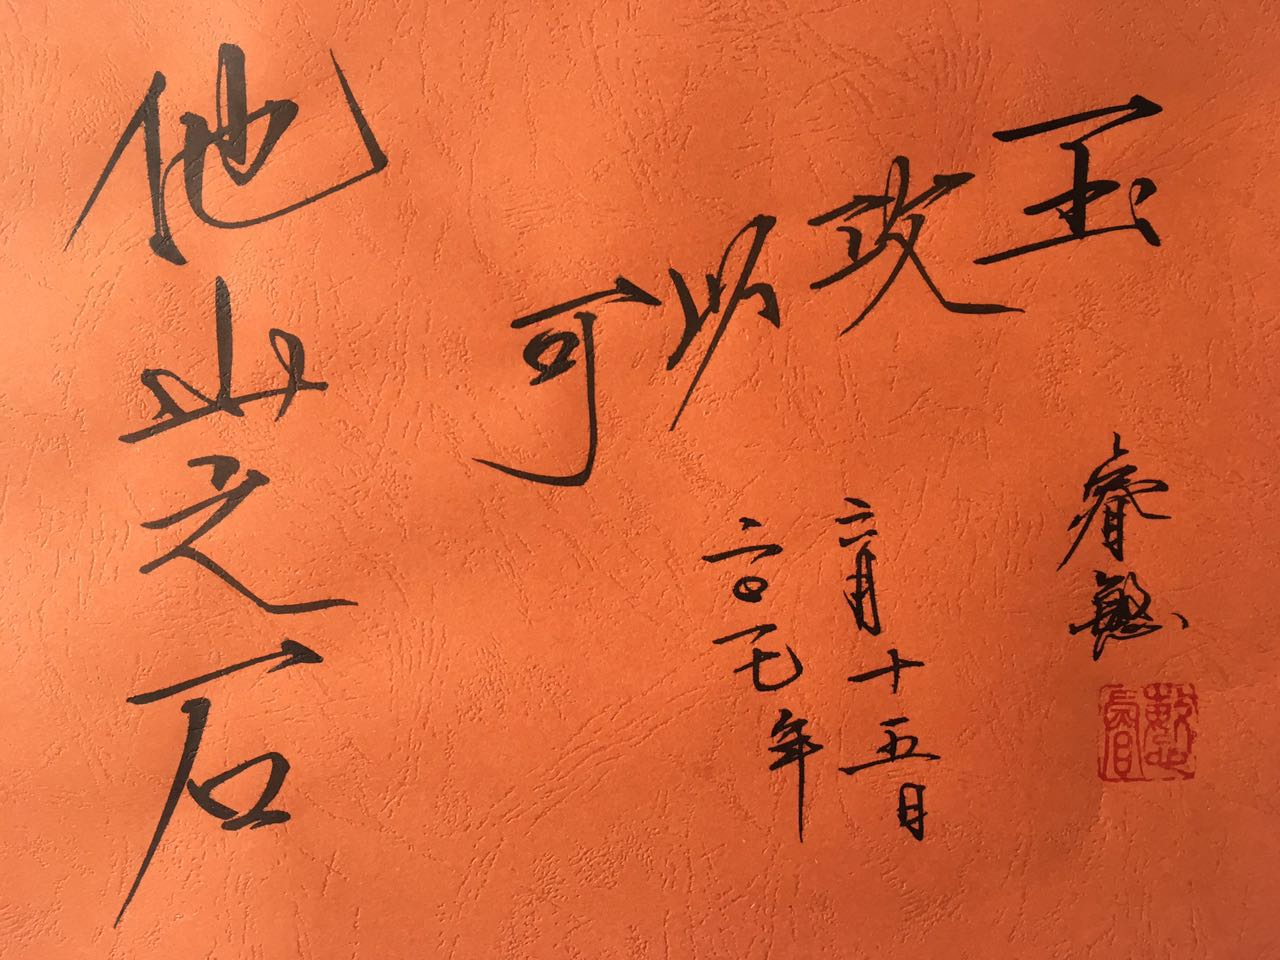 他山之石
可以攻玉
二〇一七年
六月十五日
睿慜